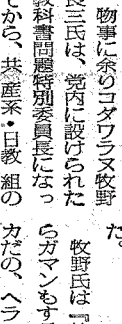 物事に余りコダワラヌ牧野
長三氏は、党内に設けられた
教科書問題特別委員長になっ
てから、共産系・日教組の
た。
牧野氏は「
らガマンもす
カだの、ヘラ